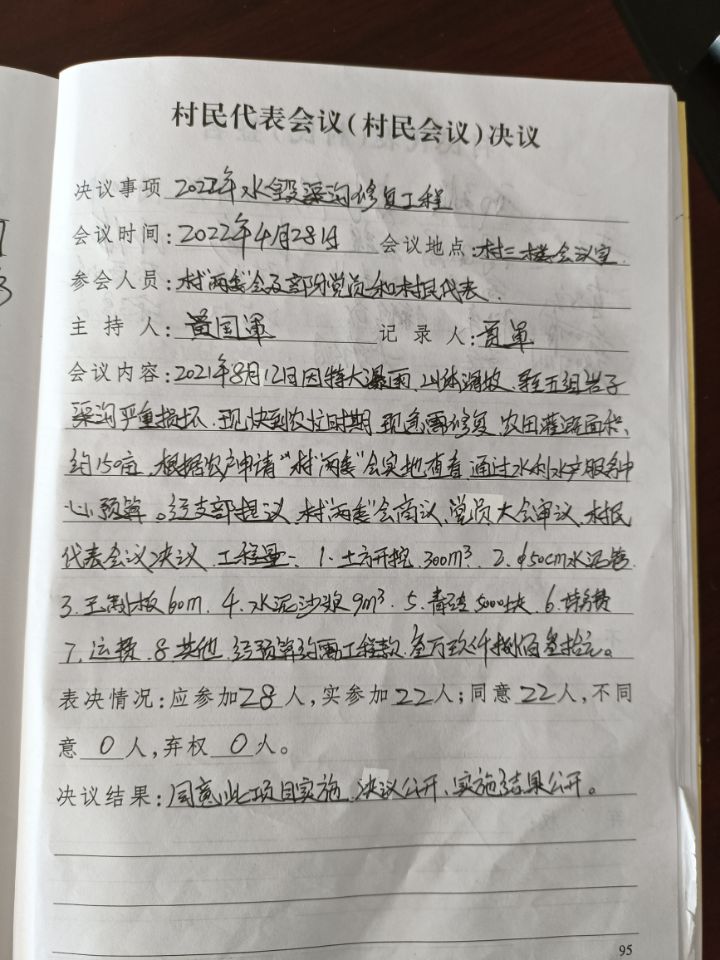 村民代表会议(村民会议)决议
决议事项 2022年水毁渠沟修复工程
会议时间:2022年4月28日 会议地点:村三楼会议室.
参会人员:村“两委”会及部份党员和村民代表.
主持人:黄国军 记录人:
会议内容:2021年8月12日因特大瀑雨、山体滑坡、导至五组岩子
渠沟严重损坏、现快到农忙时期、现急需修复、农田灌溉面积、
约150亩、根据农户申请“村“两委”会实地查看、通过水利水产服务中
心预算。经支部提议、村“两委”会商议、党员大会审议、村民
代表会议决议、工程量: 1.土方开挖、300m³、2.φ50cm水泥管
3. 板60m、4.水泥沙浆9m³、5.青砖5000块、6.转费
7.运费、8.其他、经预算约需工程款、叁万玖仟捌佰叁拾元。
表决情况:应参加28人,实参加22人;同意22人,不同
意0人,弃权0人。
决议结果:同意此项目实施、决议公开、实施结果公开。
95